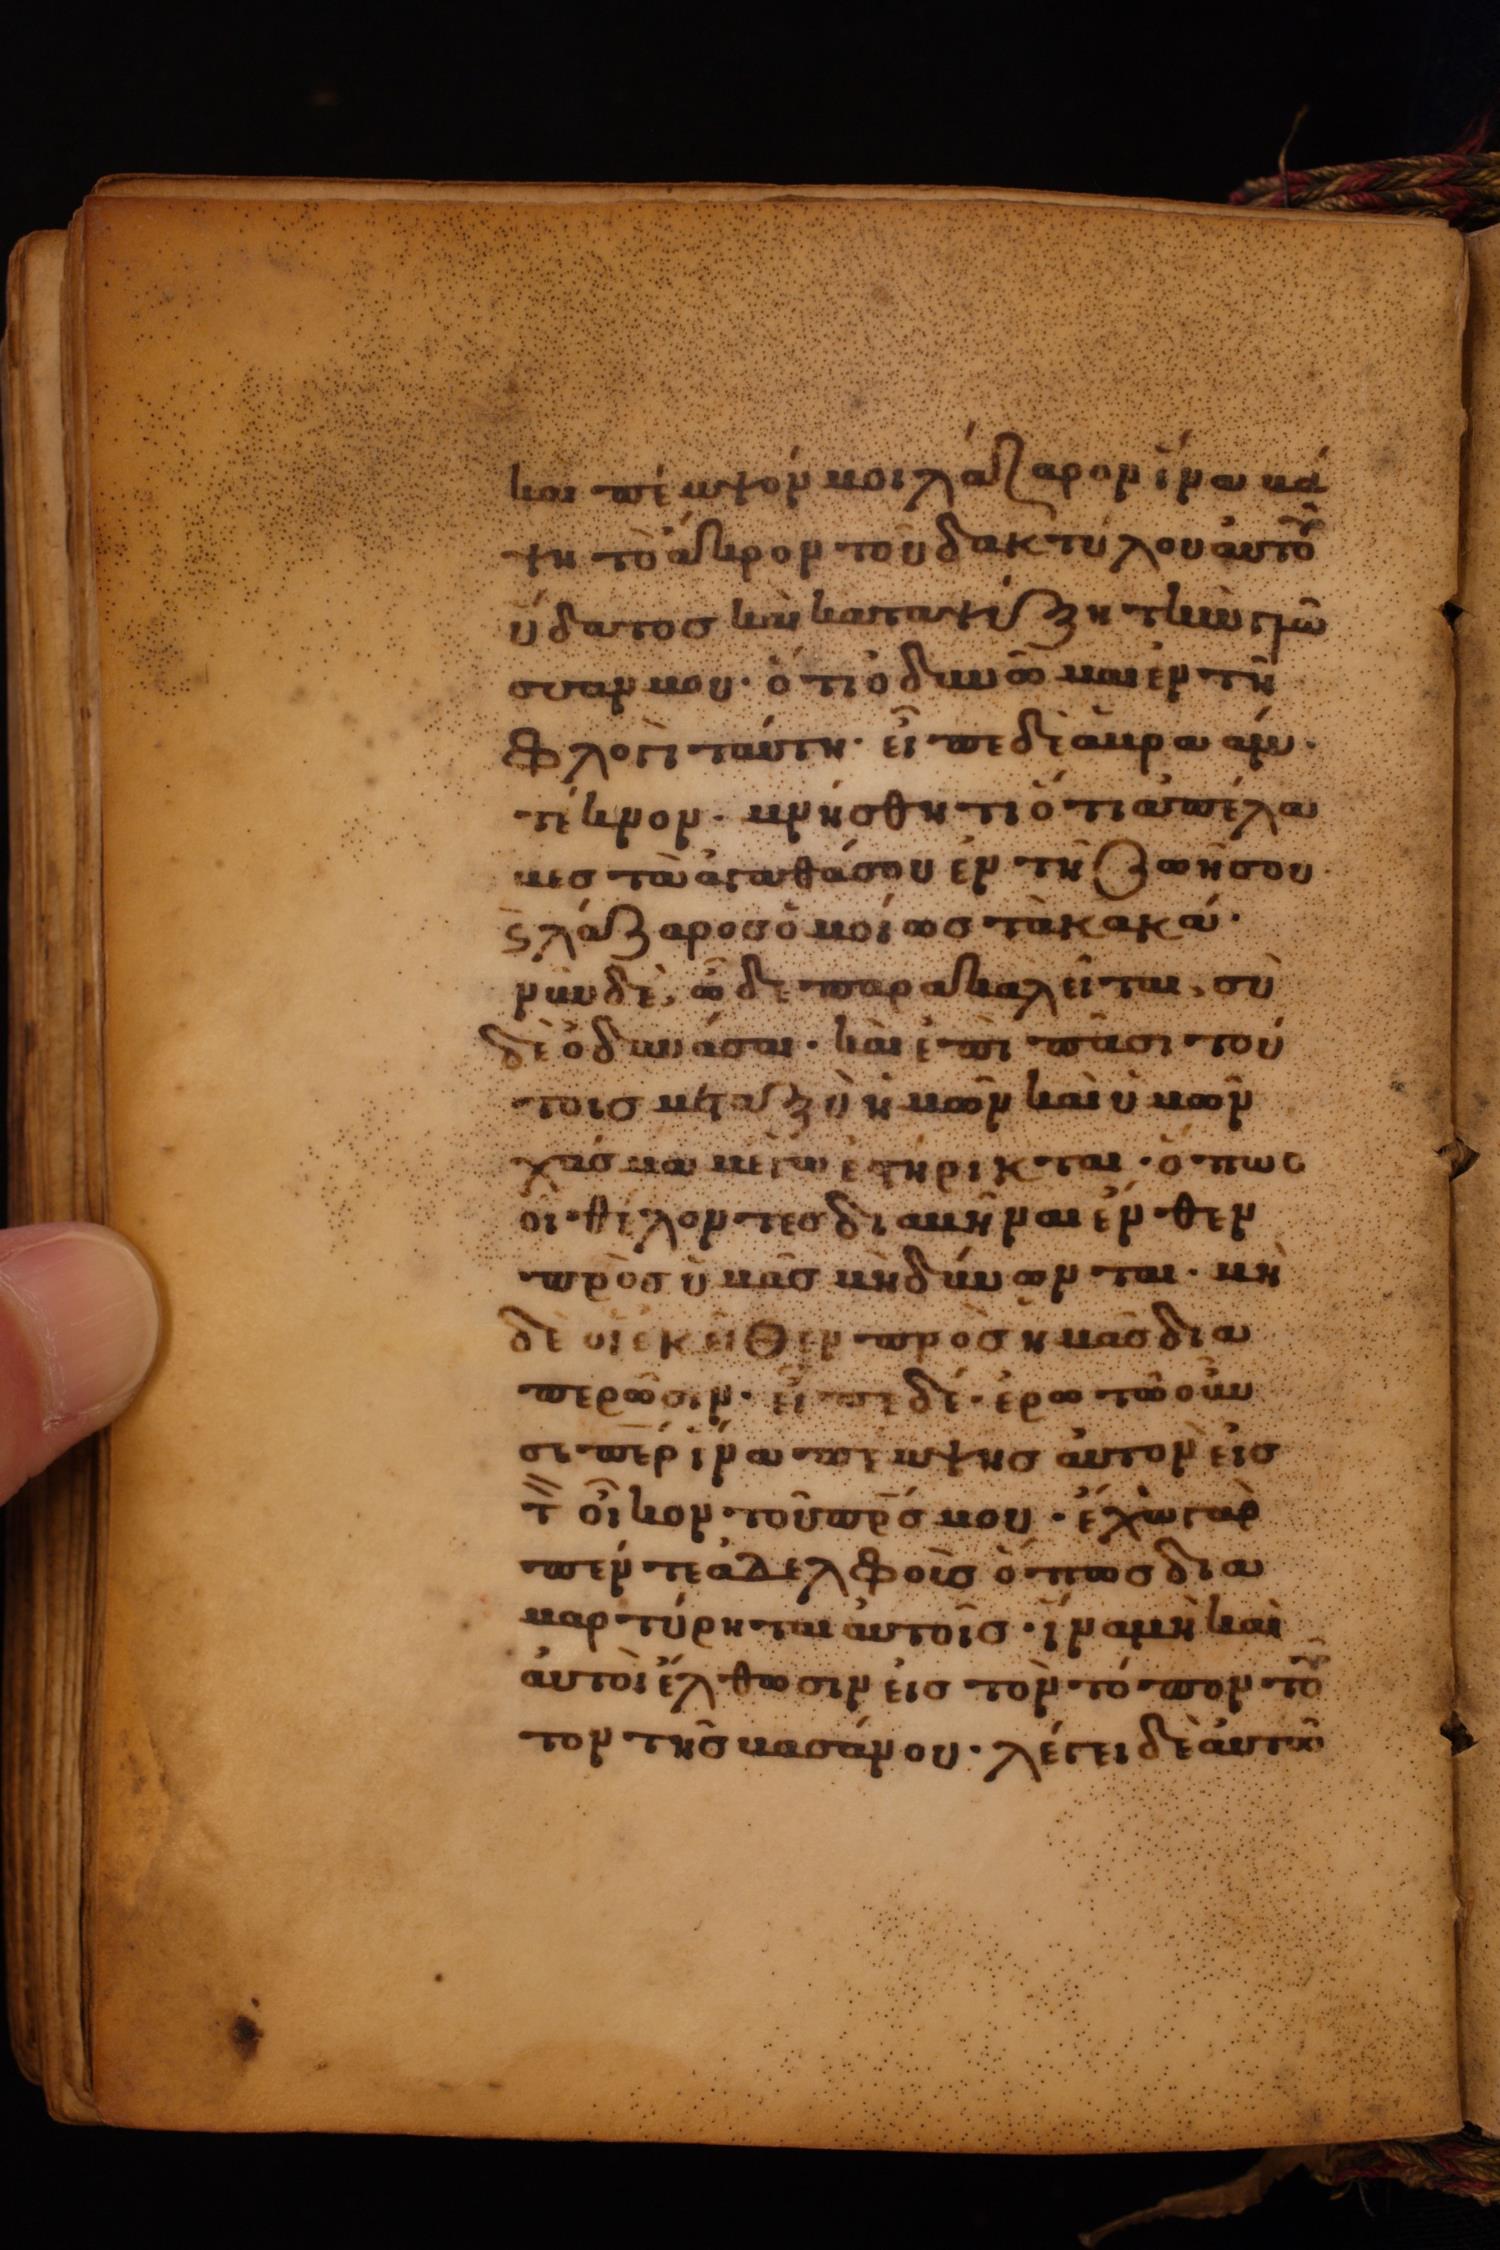 και πέμψον μοι λάζαρον ἵνα βά
ψη τὸ ἄκρον τοῦ δακτύλου αὐτοῦ
ὕδατος καὶ καταψύξη τὴν γλῶ
σσαν μου· ὅτι ὀδυνῶμαι ἐν τῆ
φλογὶ ταύτη· εἶπε δὲ ἀβραάμ·
τέκνον· μνήσθητι ὅτι ἀπέλα
βες τὰ ἀγαθά σου ἐν τῆ ζωῆ σου·
ϛ λάζαρος ὁμοίως τὰ κακά·
νῦν δὲ, ὧδε παρακαλεῖται, σὺ
δὲ ὀδυνάσαι· καὶ ἐπὶ πᾶσι τού
τοις μεταξὺ ἡμῶν καὶ ὑμῶν
χάσμα μέγα ἐστήρικται· ὅπως
οἱ θέλοντες διαβῆναι ἔνθεν
πρὸς ὑμᾶς μὴ δύνωνται· μη
δὲ οἱ ἐκεῖθεν πρὸς ἡμᾶς δια
περῶσιν· εἶπε δέ· ἐρωτῶ οὖν
σε περ ἵνα πέμψης αὐτὸν εἰς
τ̀ οἶκον τοῦ πρς μου· ἔχω γὰρ
πέντε ἀδελφοὺς ὅπως δια
μαρτύρηται αὐτοῖς· ἵνα μὴ καὶ
αὐτοὶ ἔλθωσιν εἰς τὸν τόπον τοῦ
τον τῆς βασάνου· λέγει δὲ αὐτῶ